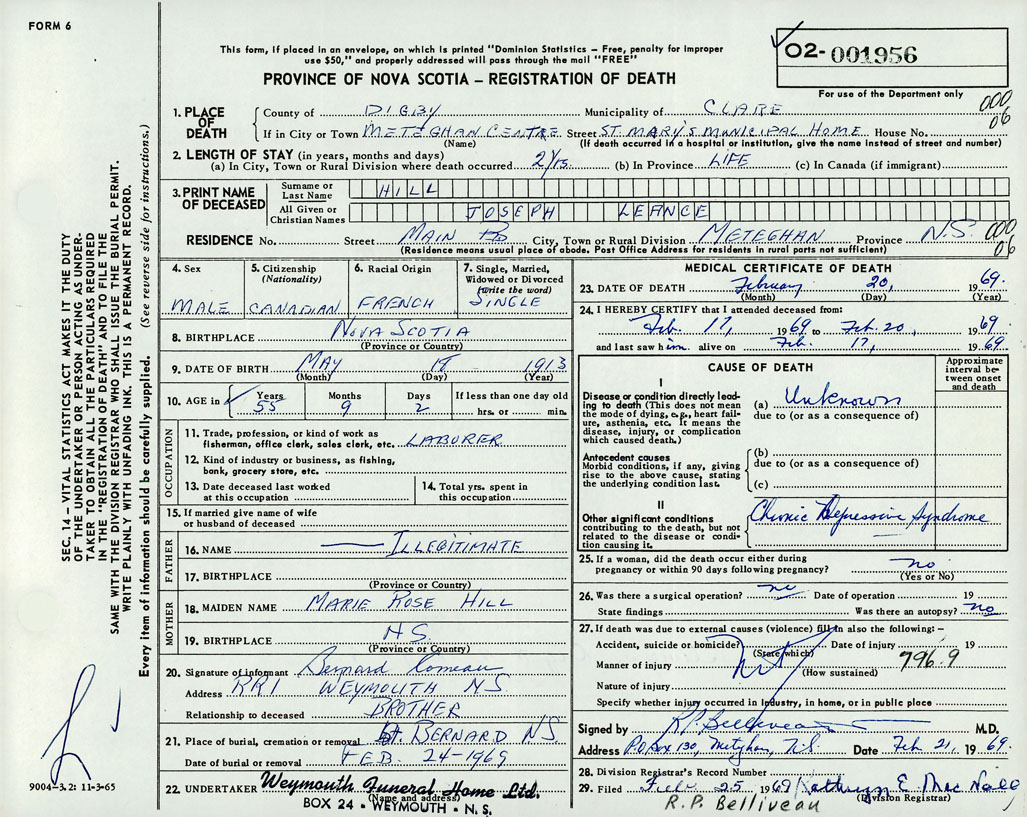 FORM 6
This form, if placed in an envelope, on which is printed "Dominion Statistics – Free, penalty for improper
use $50," and properly addressed will pass through the mail "FREE"
PROVINCE OF NOVA SCOTIA – REGISTRATION OF DEATH
02-001956
For use of the Department only
000
06
1. PLACE OF DEATH
County of DIGBY Municipality of CLARE
If in City or Town METEGHAN CENTRE Street ST. MARY'S MUNICIPAL HOME House No.
(Name) (If death occurred in a hospital or institution, give the name instead of street and number)
2. LENGTH OF STAY (in years, months and days)
(a) In City, Town or Rural Division where death occurred 2 yrs. (b) In Province LIFE (c) In Canada (if immigrant)
3. PRINT NAME OF DECEASED
Surname or Last Name HILL
All Given or Christian Names JOSEPH LEANCE
RESIDENCE No. Street MAIN RD City, Town or Rural Division METEGHAN Province N.S.
000
06
(Residence means usual place of abode. Post Office Address for residents in rural parts not sufficient)
4. Sex
MALE
5. Citizenship
(Nationality)
CANADIAN
6. Racial Origin
FRENCH
7. Single, Married,
Widowed or Divorced
(write the word)
SINGLE
8. BIRTHPLACE NOVA SCOTIA
(Province or Country)
9. DATE OF BIRTH MAY 18 1913
(Month) (Day) (Year)
10. AGE in Years 55 Months 9 Days 2 If less than one day old
hrs. or min.
OCCUPATION
11. Trade, profession, or kind of work as
fisherman, office clerk, sales clerk, etc. LABORER
12. Kind of industry or business, as fishing,
bank, grocery store, etc.
13. Date deceased last worked
at this occupation
14. Total yrs. spent in
this occupation
15. If married give name of wife
or husband of deceased
FATHER
16. NAME ILLEGITIMATE
17. BIRTHPLACE
(Province or Country)
MOTHER
18. MAIDEN NAME MARIE ROSE HILL
19. BIRTHPLACE N S.
(Province or Country)
20. Signature of informant Bernard Comeau
Address RR1 WEYMOUTH NS
Relationship to deceased BROTHER
21. Place of burial, cremation or removal St. BERNARD NS
Date of burial or removal FEB. 24-1969
22. UNDERTAKER Weymouth Funeral Home Ltd.
(Name and address)
BOX 24 - WEYMOUTH - N. S.
MEDICAL CERTIFICATE OF DEATH
23. DATE OF DEATH February 20, 1969.
(Month) (Day) (Year)
24. I HEREBY CERTIFY that I attended deceased from:
Feb. 17, 1969 to Feb. 20, 1969
and last saw him alive on Feb. 17, 1969
CAUSE OF DEATH
Approximate
interval be-
tween onset
and death
I
Disease or condition directly lead-
ing to death (This does not mean
the mode of dying, e.g., heart fail-
ure, asthenia, etc. It means the
disease, injury, or complication
which caused death.)
(a) Unknown
due to (or as a consequence of)
Antecedent causes
Morbid conditions, if any, giving
rise to the above cause, stating
the underlying condition last.
(b)
due to (or as a consequence of)
(c)
II
Other significant conditions
contributing to the death, but not
related to the disease or condi-
tion causing it.
Chronic Depressive Syndrome
25. If a woman, did the death occur either during
pregnancy or within 90 days following pregnancy? no
(Yes or No)
26. Was there a surgical operation? no Date of operation 19
State findings Was there an autopsy? no
27. If death was due to external causes (violence) fill in also the following: –
Accident, suicide or homicide? Date of injury 19
(State which)
796.9
Manner of injury
(How sustained)
Nature of injury
Specify whether injury occurred in Industry, in home, or in public place
Signed by R.P. Belliveau M.D.
Address P.O Box 130, Meteghan, N.S. Date Feb 21, 1969.
28. Division Registrar's Record Number
29. Filed Feb 25 1969 Kathryn E. Mac Neill
(Division Registrar)
R.P. Belliveau
SEC. 14 – VITAL STATISTICS ACT MAKES IT THE DUTY
OF THE UNDERTAKER OR PERSON ACTING AS UNDER-
TAKER TO OBTAIN ALL THE PARTICULARS REQUIRED
IN THE "REGISTRATION OF DEATH" AND TO FILE THE
SAME WITH THE DIVISION REGISTRAR WHO SHALL ISSUE THE BURIAL PERMIT.
WRITE PLAINLY WITH UNFADING INK. THIS IS A PERMANENT RECORD.
Every item of information should be carefully supplied. (See reverse side for instructions.)
9004-3.2: 11-3-65